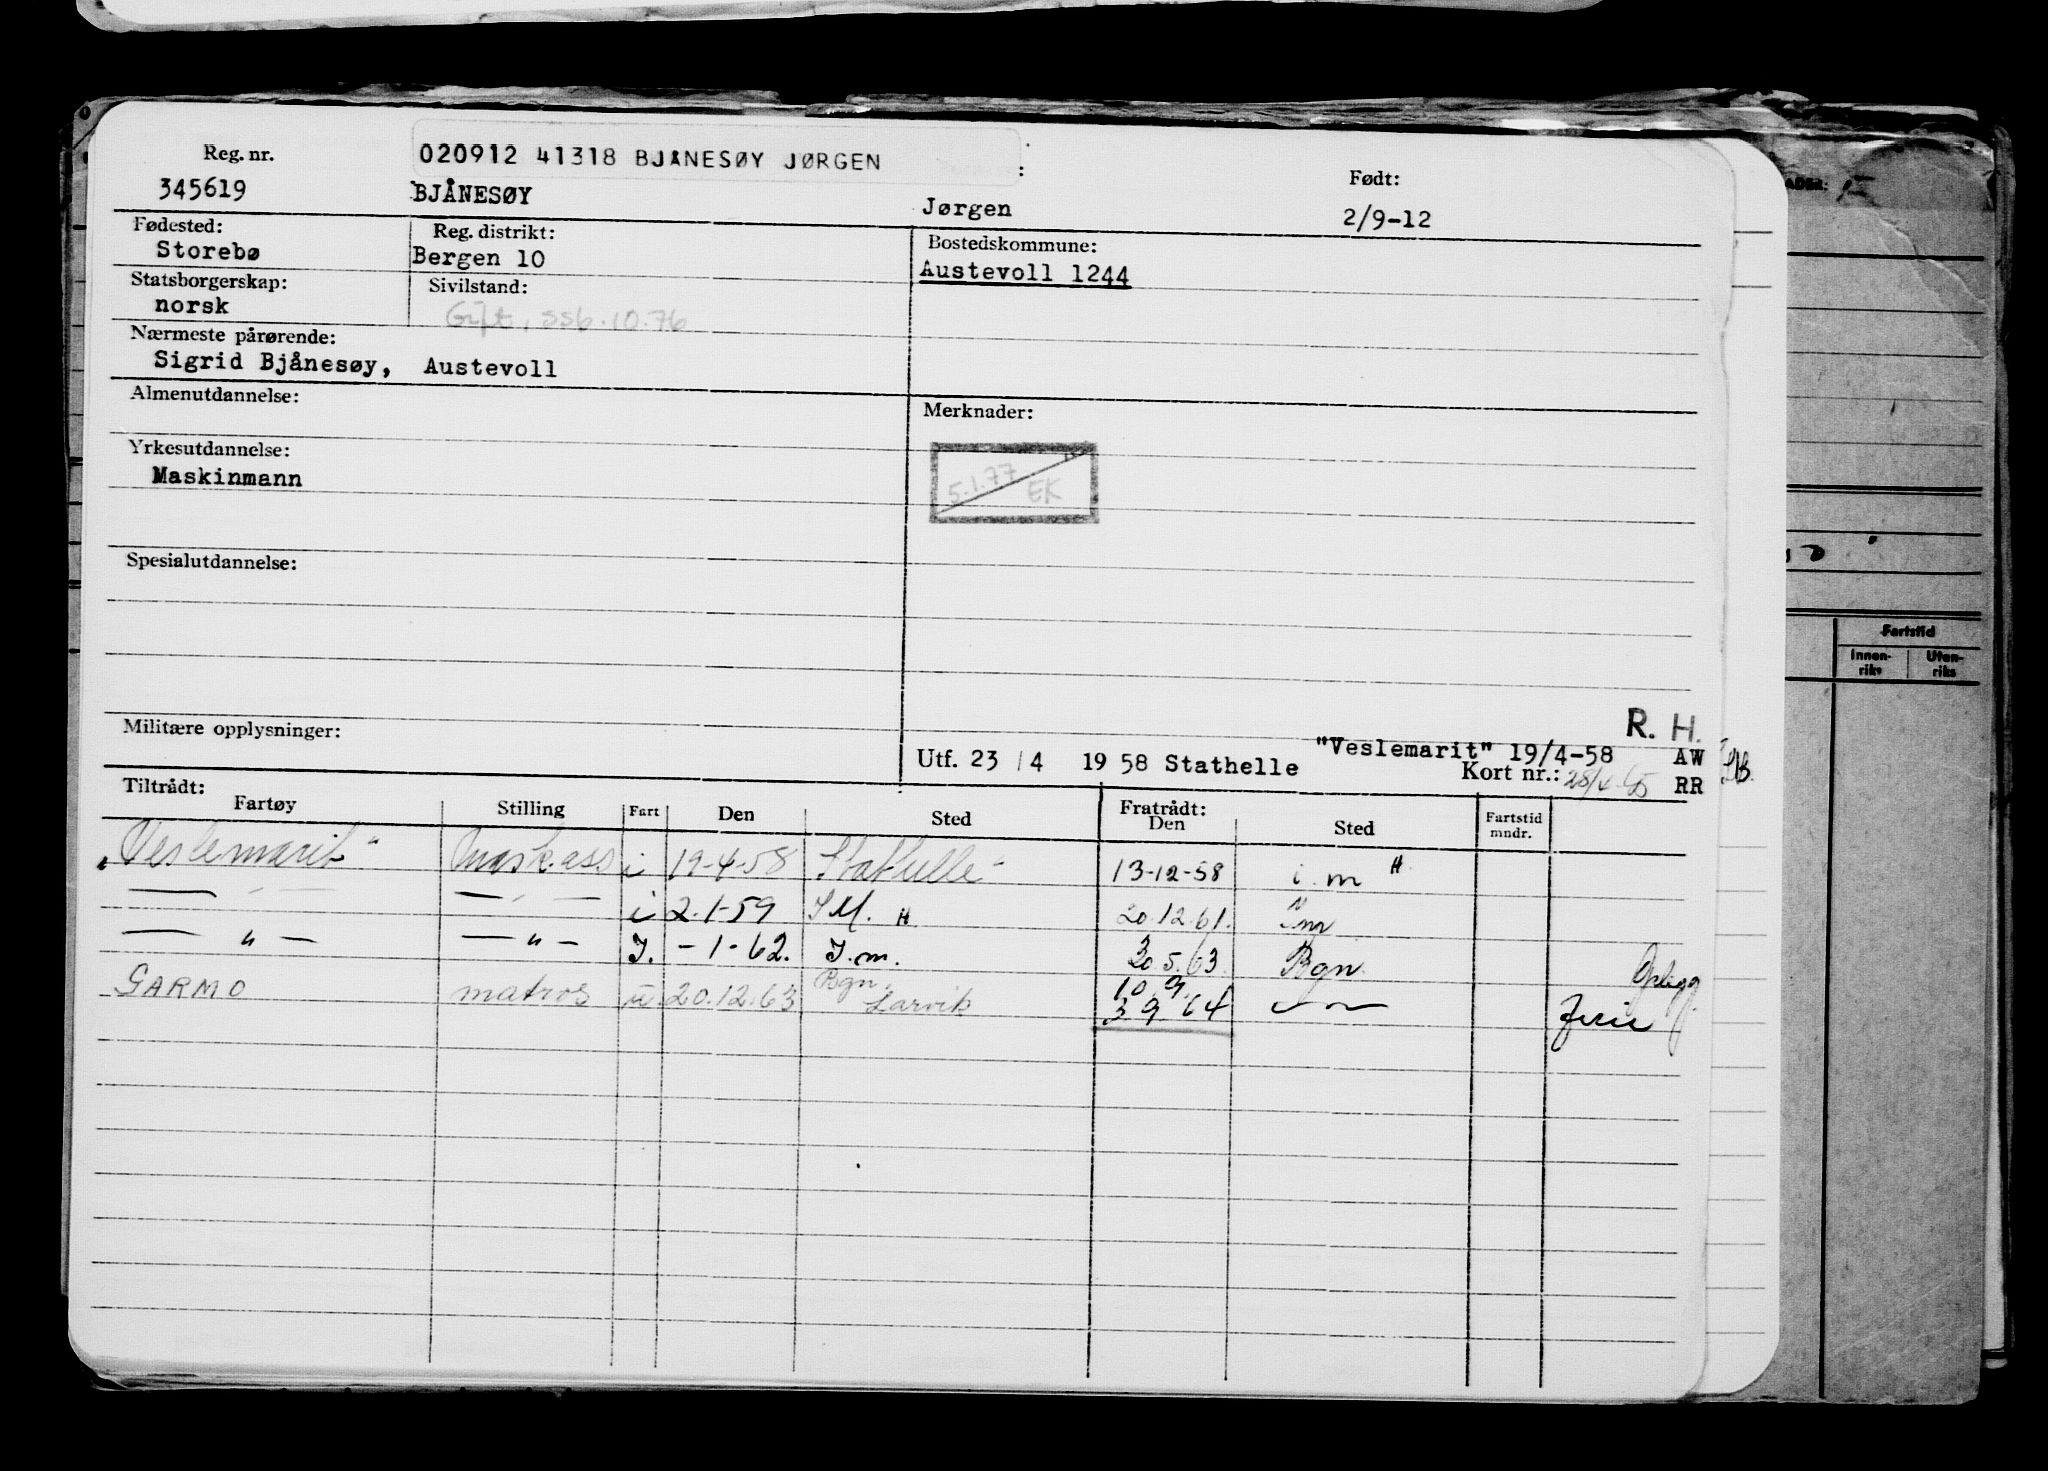 Reg. nr.
020912 41318 BJÅNESØY JØRGEN
:
Født:
345619
BJÅNESØY
Jørgen
2/9-12
Fødested:
Reg. distrikt:
Bostedskommune:
Storebø
Bergen 10
Austevoll 1244
Statsborgerskap:
Sivilstand:
norsk
Gift, SSB.10.76
Nærmeste pårørende:
Sigrid Bjånesøy, Austevoll
Almenutdannelse:
Merknader:
Yrkesutdannelse:
Maskinmann
5.1.77 EK
Spesialutdannelse:
R. H.
Militære opplysninger:
"Veslemarit" 19/4-58 AW
Utf. 23/4 1958 Stathelle
Kort nr.: 28/4-65 RR
Tiltrådt:
Fartøy Stilling Fart Den Sted Fratrådt: Den Sted Fartstid mndr.
"Veslemarit" Mask.ass i 19-4-58 Stathelle 13-12-58 i.m H
— " — — " — i 2.1-59 I M. H 20.12.61. i m
— " — — " — I. -1-62. I.m. 30.5.63 Bgn. Opplegg.
GARMO matros u. 20.12.63 Bgn. Larvik 10.9. 3 9.64 — " — Ferie
Fartstid
Innen-riks
Uten-riks